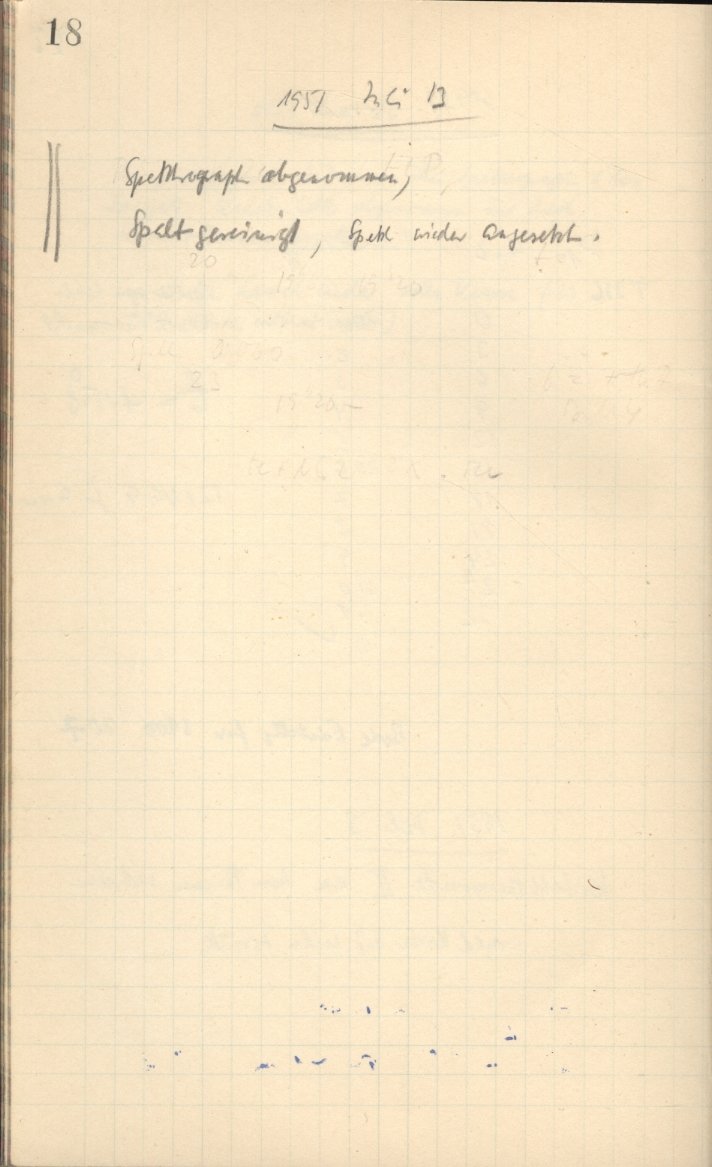 18
1951 Juli 13
Spektrograph abgenommen,
Spalt gereinigt, Spekt wieder angesetzt.